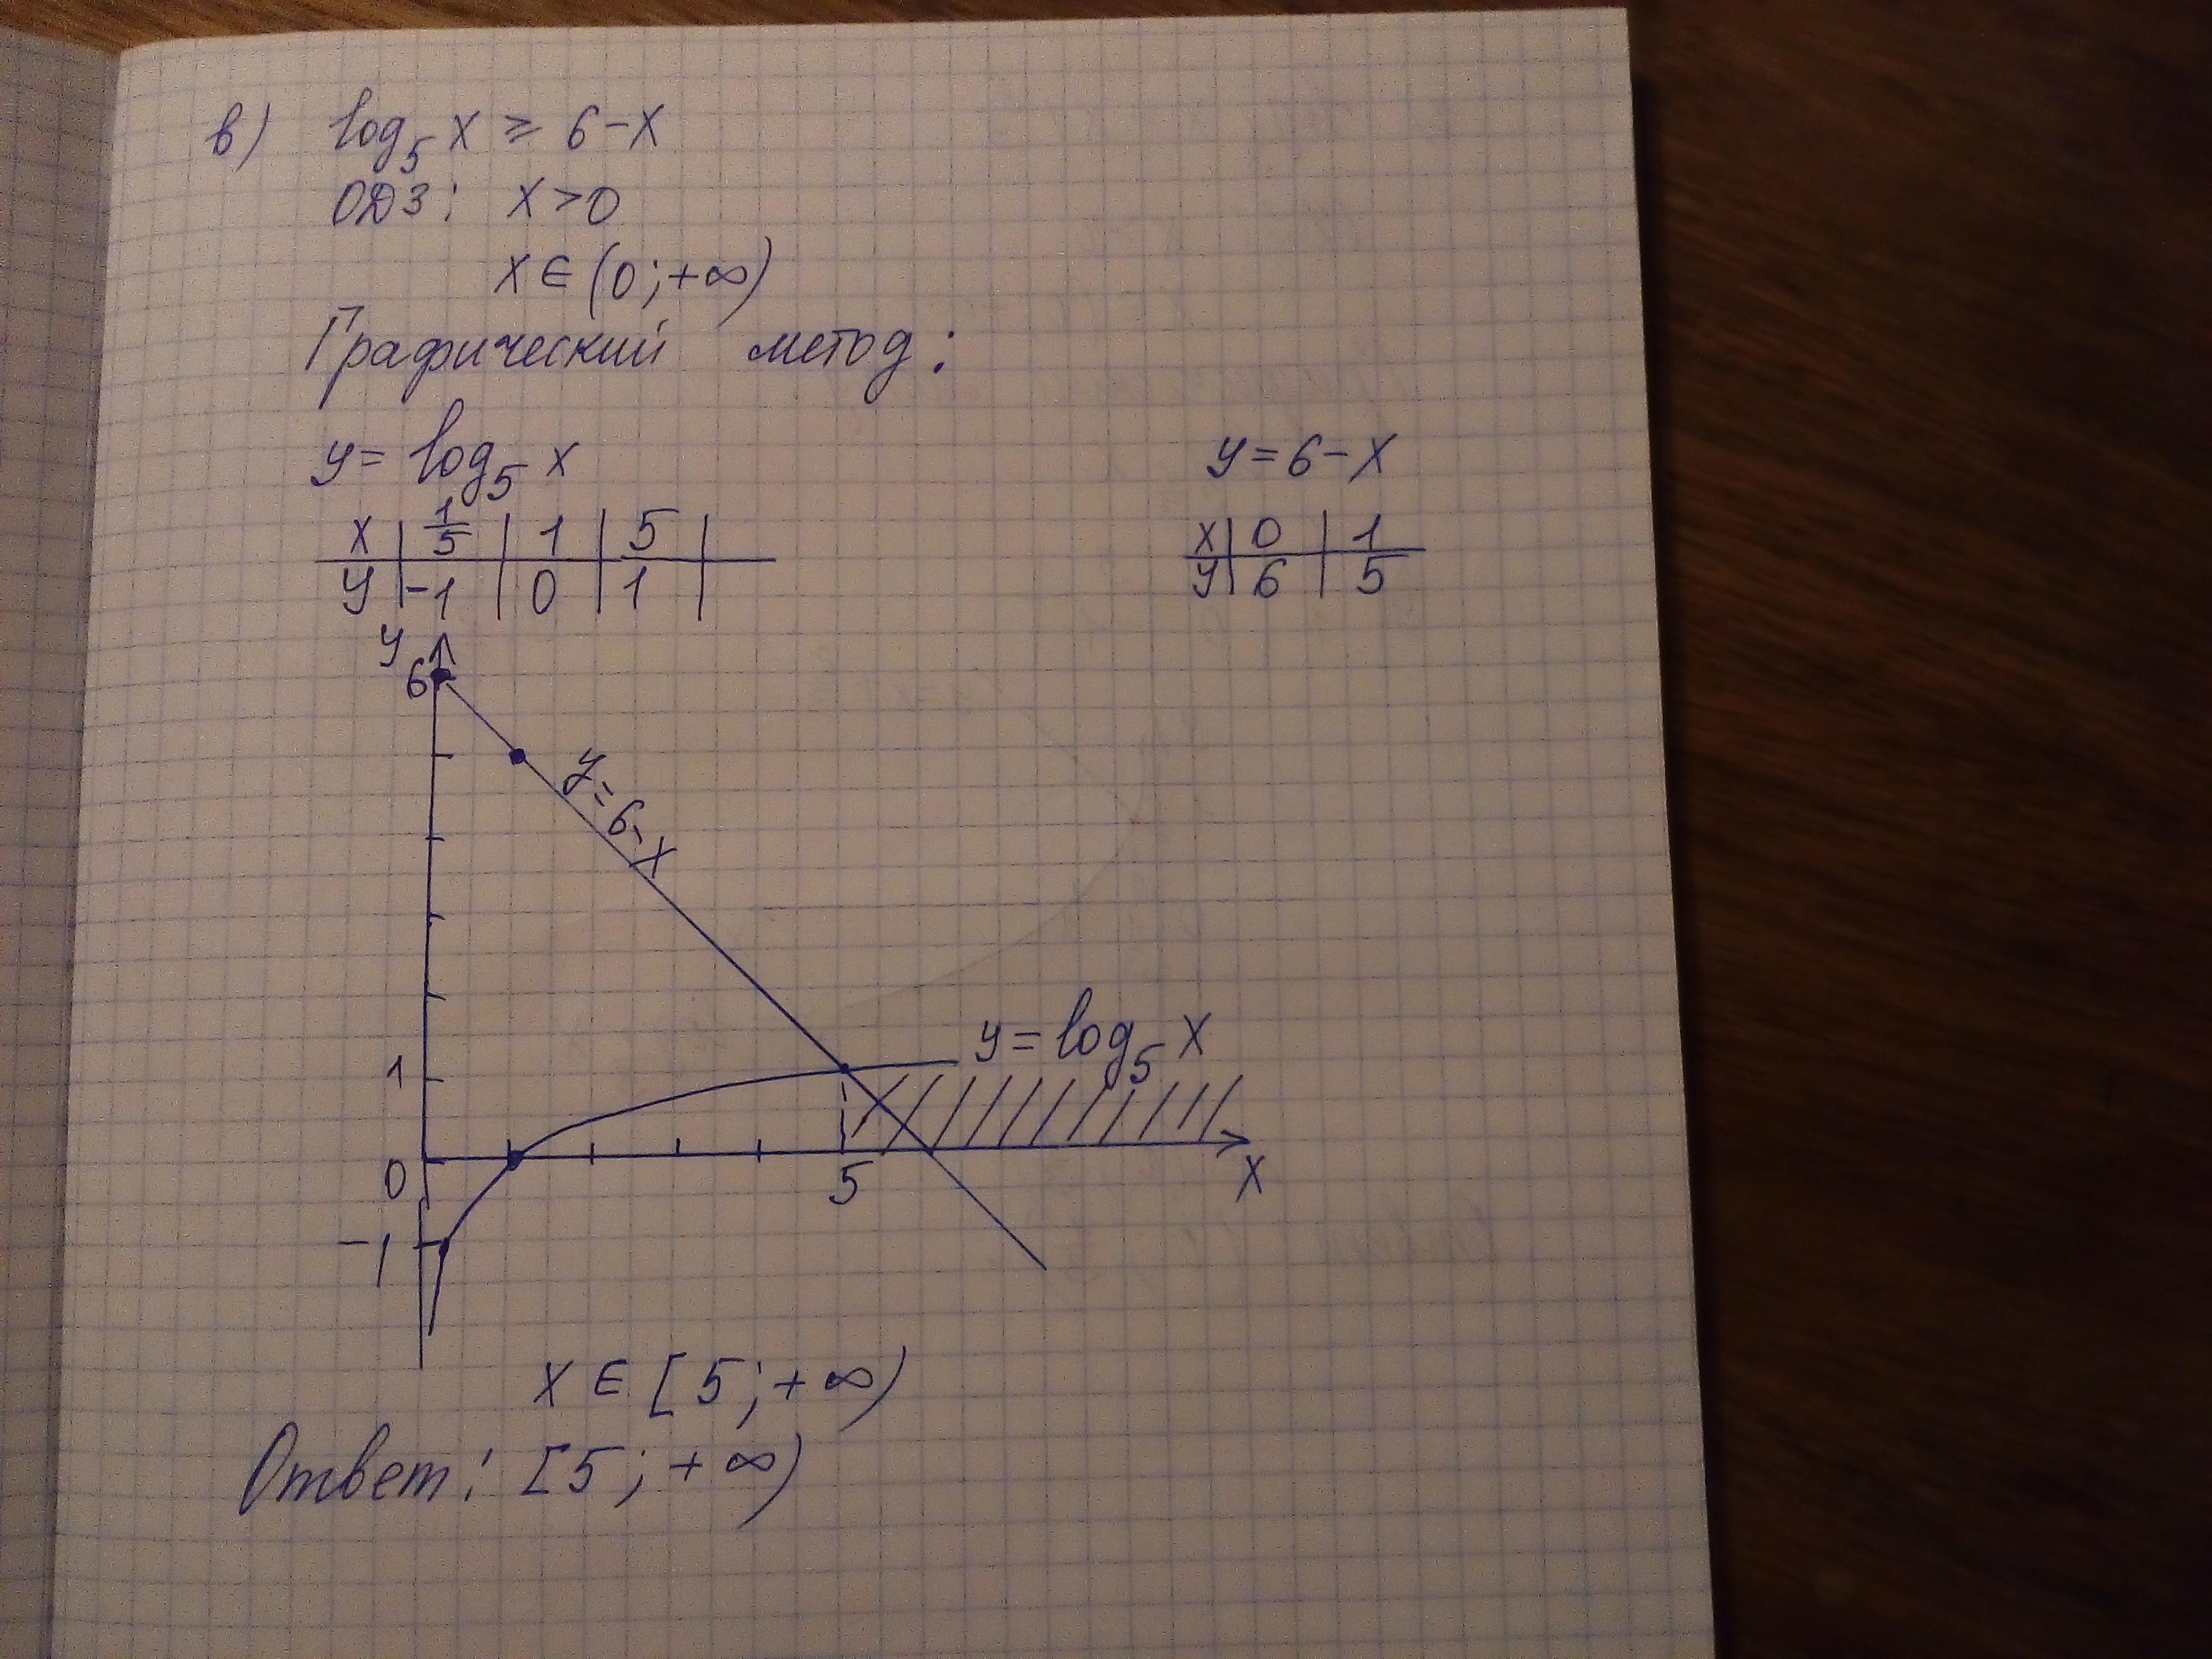 в) log₅ x ≥ 6-x
ОДЗ: x>0
x∈(0;+∞)
Графический метод:
y= log₅ x
x | 1/5 | 1 | 5 |
y | -1 | 0 | 1 |
y=6-x
x | 0 | 1
y | 6 | 5
y
6
y=6-x
y=log₅ x
1
0
5
x
-1
x∈[5;+∞)
Ответ: [5;+∞)